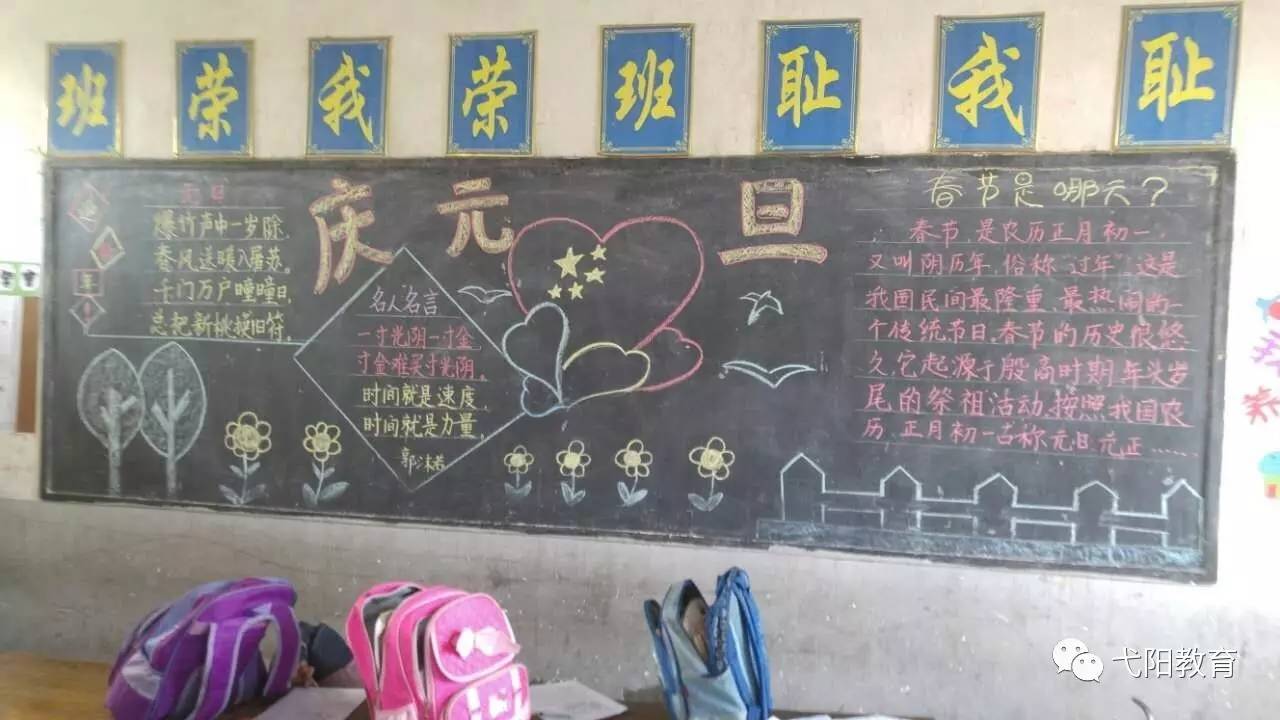 班荣我荣班耻我耻
庆元旦
元旦
爆竹声中一岁除,
春风送暖入屠苏。
千门万户曈曈日,
总把新桃换旧符。
名人名言
一寸光阴一寸金
寸金难买寸光阴。
时间就是速度,
时间就是力量,
郭沫若
春节是哪天?
春节,是农历正月初一,
又叫阴历年,俗称"过年"。这是
我国民间最隆重、最热闹的一
个传统节日。春节的历史很悠
久,它起源于殷商时期年头岁
尾的祭祖活动。按照我国农
历,正月初一古称元日、元正……
弋阳教育